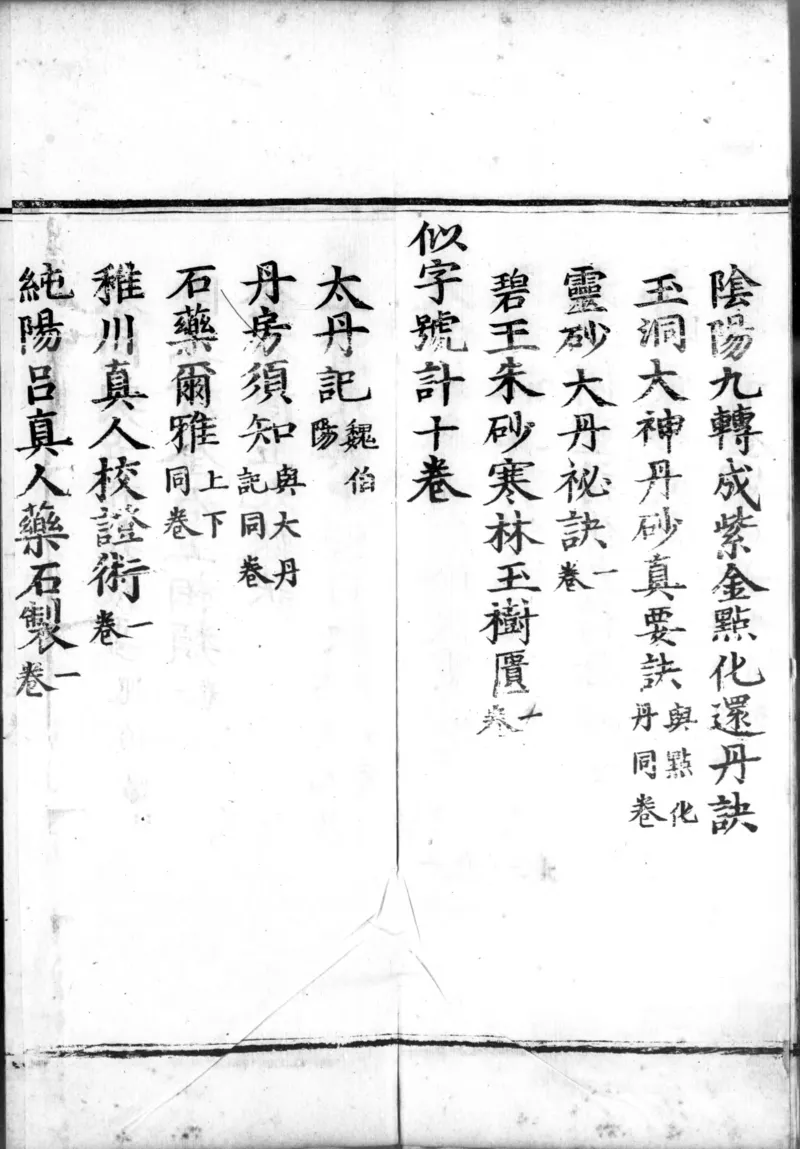 陰陽九轉成紫金點化還丹訣
玉洞大神丹砂真要訣與點化丹同卷
靈砂大丹祕訣一卷
碧玉朱砂寒林玉樹匱一卷
似字號計十卷
太丹記魏伯陽
丹房須知與大丹記同卷
石藥爾雅上下同卷
稚川真人校證術一卷
純陽呂真人藥石製一卷